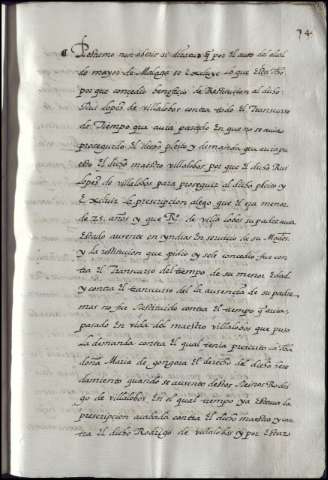 74.
Postremo non obstar si dixesse q̃ por El auto del alcalde
de mayor de Malaga se Excluye lo que Esta dho
por que concedio beneficio de Restitucion al dicho
Rui lopez de villalobos contra todo El Transcurso
de Tiempo que auia pasado En que no se auia
proseguido El dicho pleito y demanda que auia pu
esto El dicho maestro villalobos por que El dicho Rui
lopez de villalobos para proseguir al dicho pleito y
Excluir la prescripcion alego que El era menor
de 25. años y que Rº. de villa lobos su padre auia
Estado ausente en yndias En seruicio de su Magd.
y la restitucion que pidio y se le concedio fue con
tra El Transcurso del tiempo de su menor Edad
y contra El transcurso del la ausencia de su padre
mas no fue Restituido contra El tiempo q̃ auia
pasado En vida del maestro villalobos que puso
la demanda contra El qual tenia prescrito la dha
doña Maria de gongora El derecho del dicho
damiento quando se ausento destos Reinos Rodri
go de villalobos En el qual tiempo ya Estaua la
prescripcion acabada contra El dicho maestro y con
tra El dicho Rodrigo de villalobos y por Estar